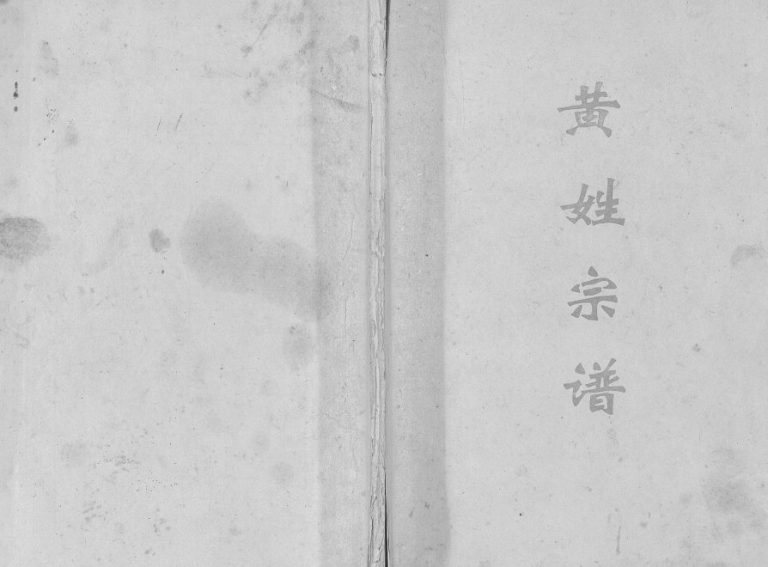 黄姓宗谱